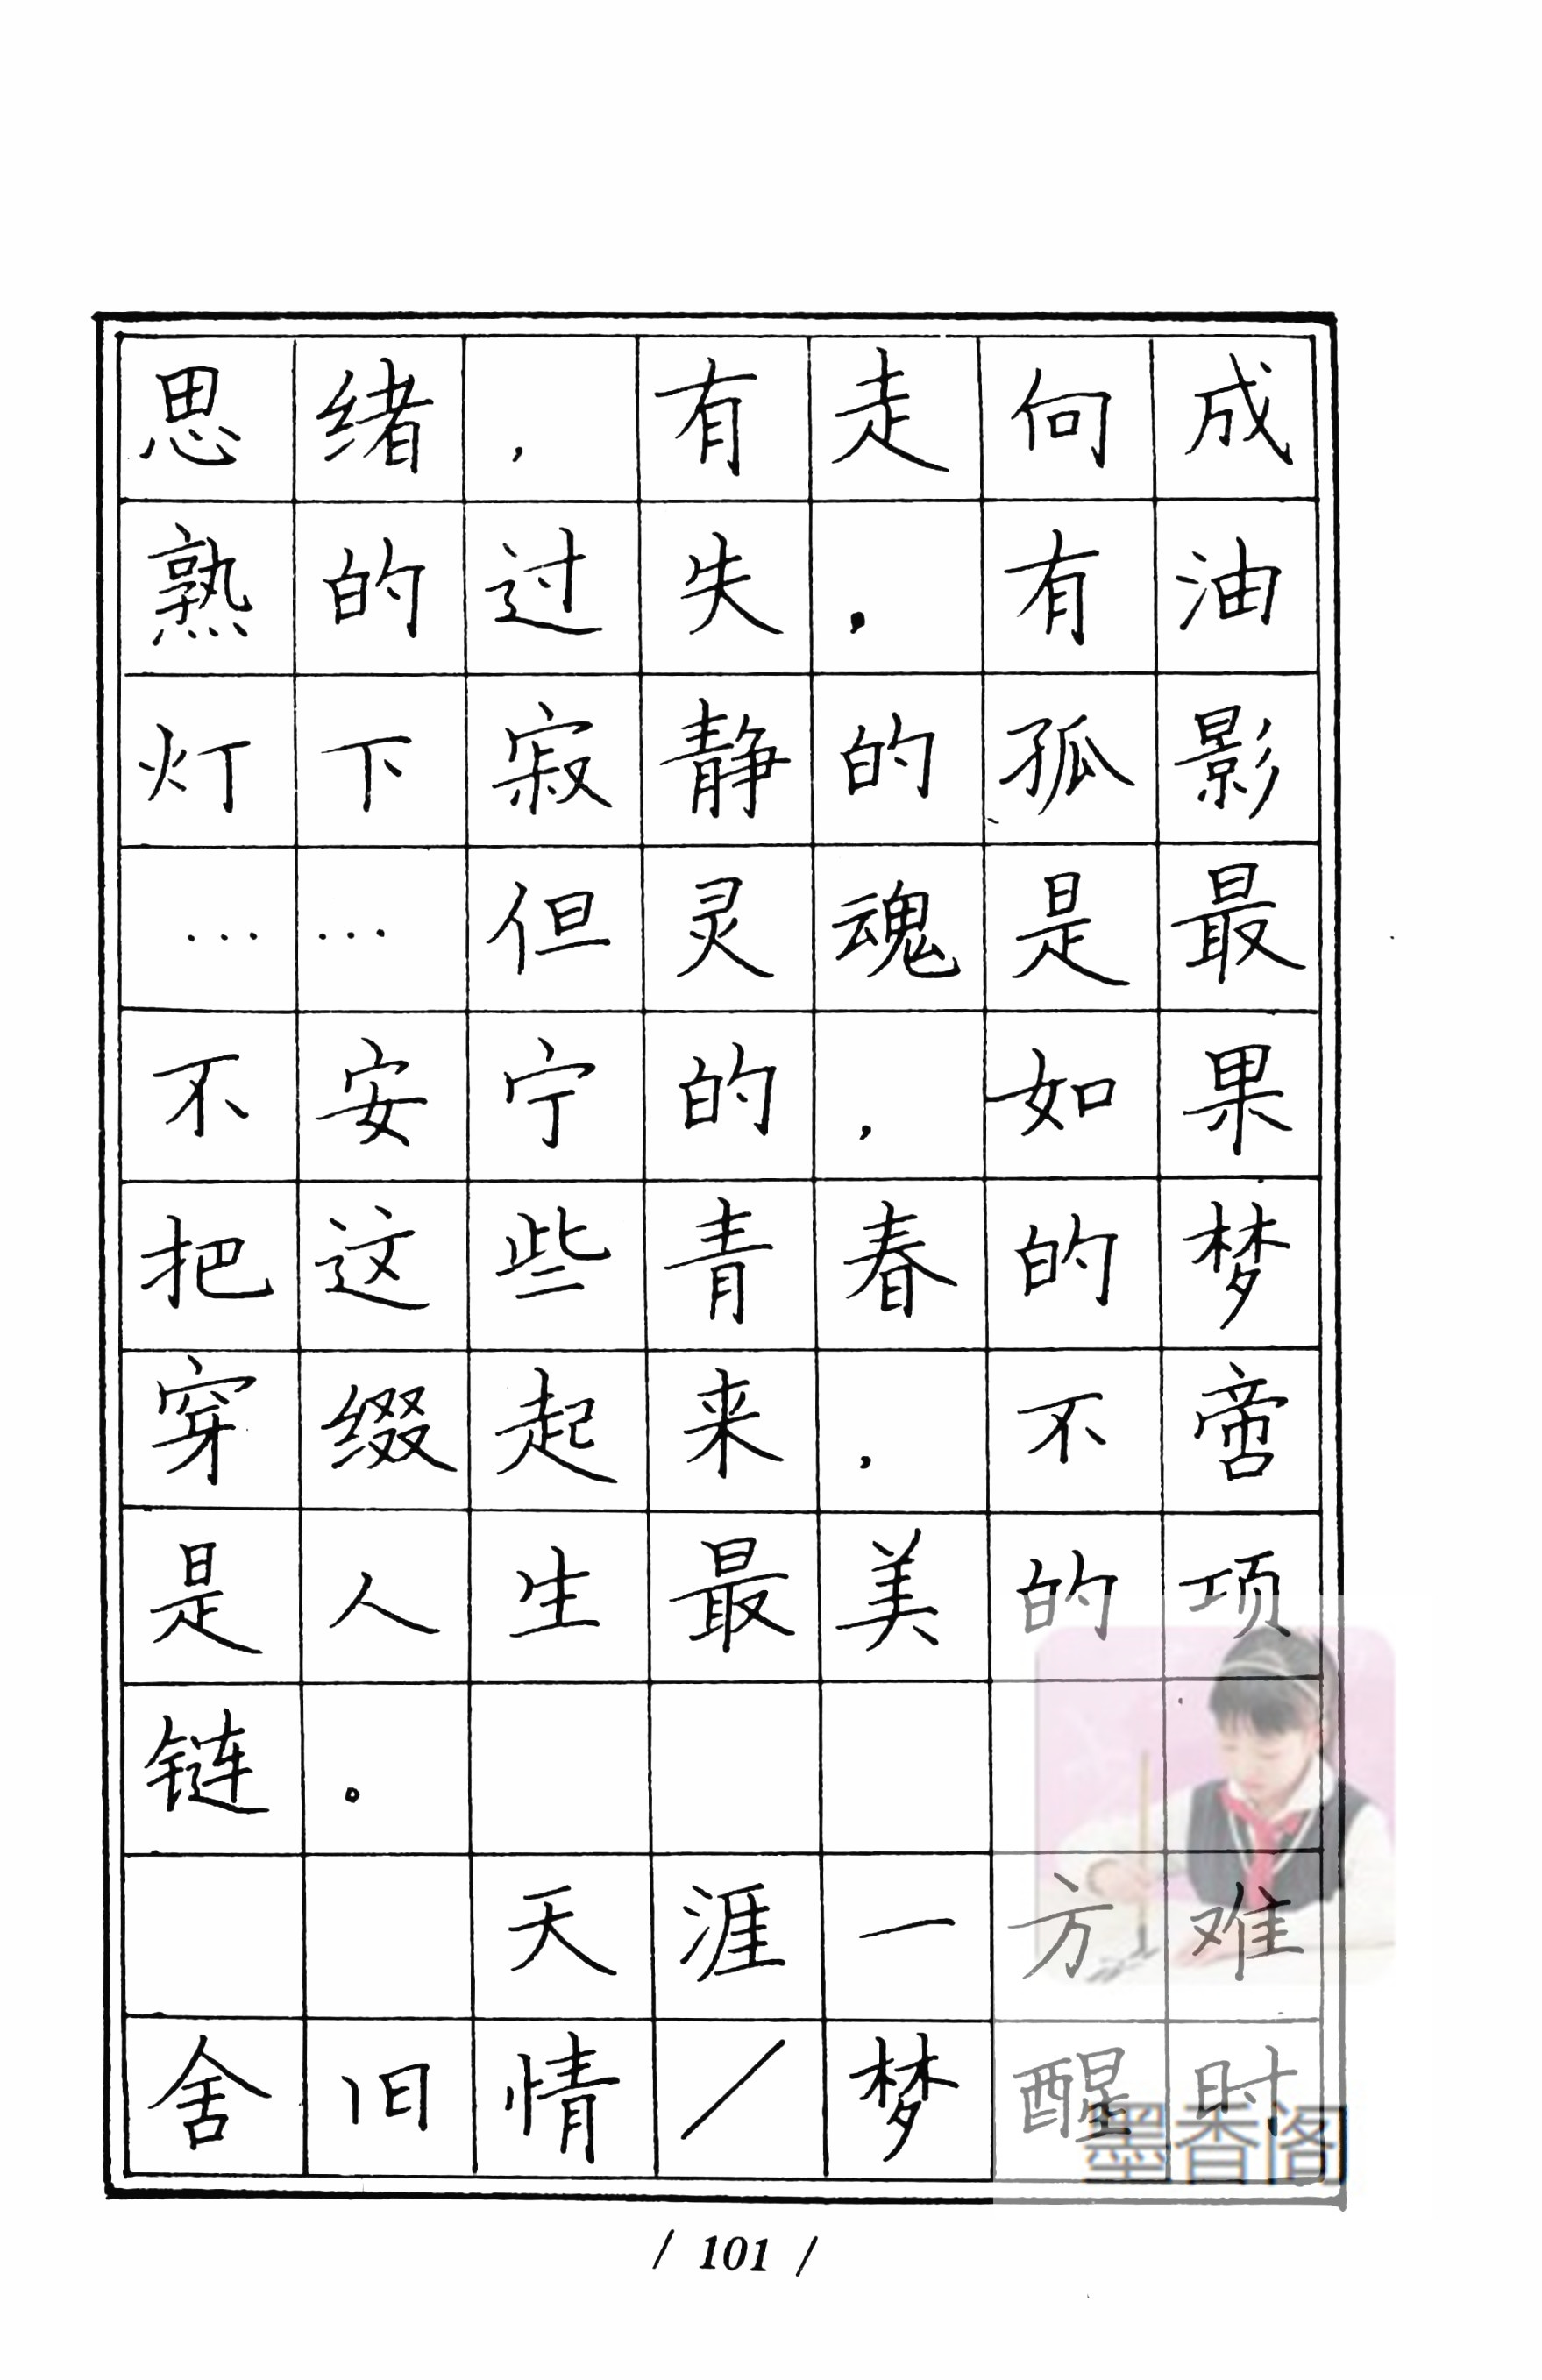 思绪，有走向成
熟的过失，有油
灯下寂静的孤影
……但灵魂是最
不安宁的，如果
把这些青春的梦
穿缀起来，不啻
是人生最美的项
链。
天涯一方难
舍旧情／梦醒时
墨香阁
/ 101 /